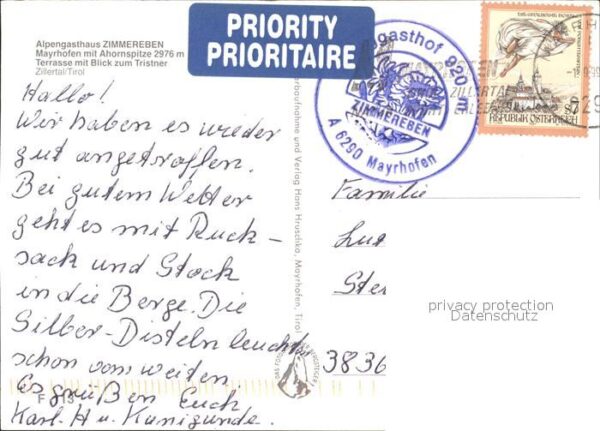 Alpengasthaus ZIMMEREBEN
Mayrhofen mit Ahornspitze 2976 m
Terrasse mit Blick zum Tristner
Zillertal/Tirol
PRIORITY
PRIORITAIRE
gasthof 920 m
ZIMMEREBEN
A 6290 Mayrhofen
REPUBLIK ÖSTERREICH
Hallo!
Wir haben es wieder
gut angetroffen.
Bei gutem Wetter
geht es mit Ruck-
sack und Stock
in die Berge. Die
Silber-Disteln leuchten
schon vom weiten.
Es grüßen Euch
Karl-H u. Kunigunde.
Verlag Hans Hruschka, Mayrhofen, Tirol
Familie
Lut
Ster
3836
privacy protection
Datenschutz